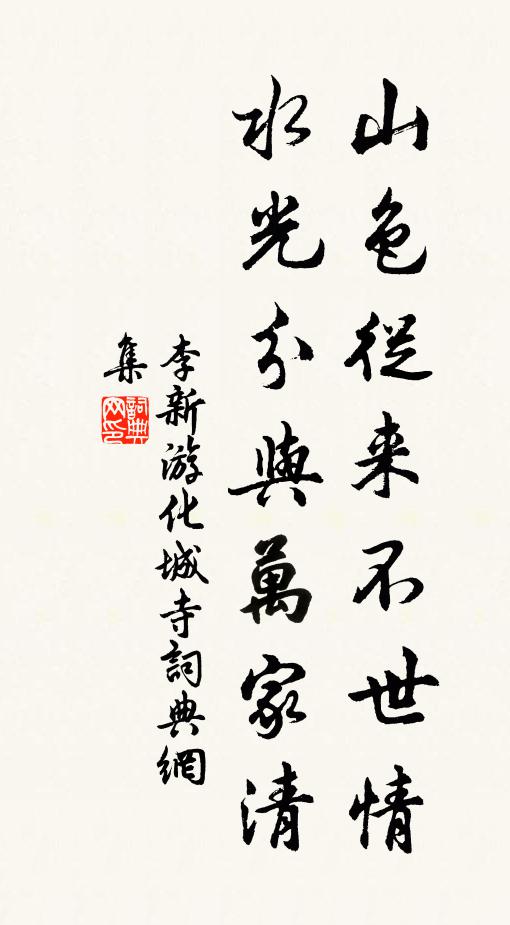 山色從来不世情
水光分與萬家清
李新游化城寺詞典網
集
詞典
网印